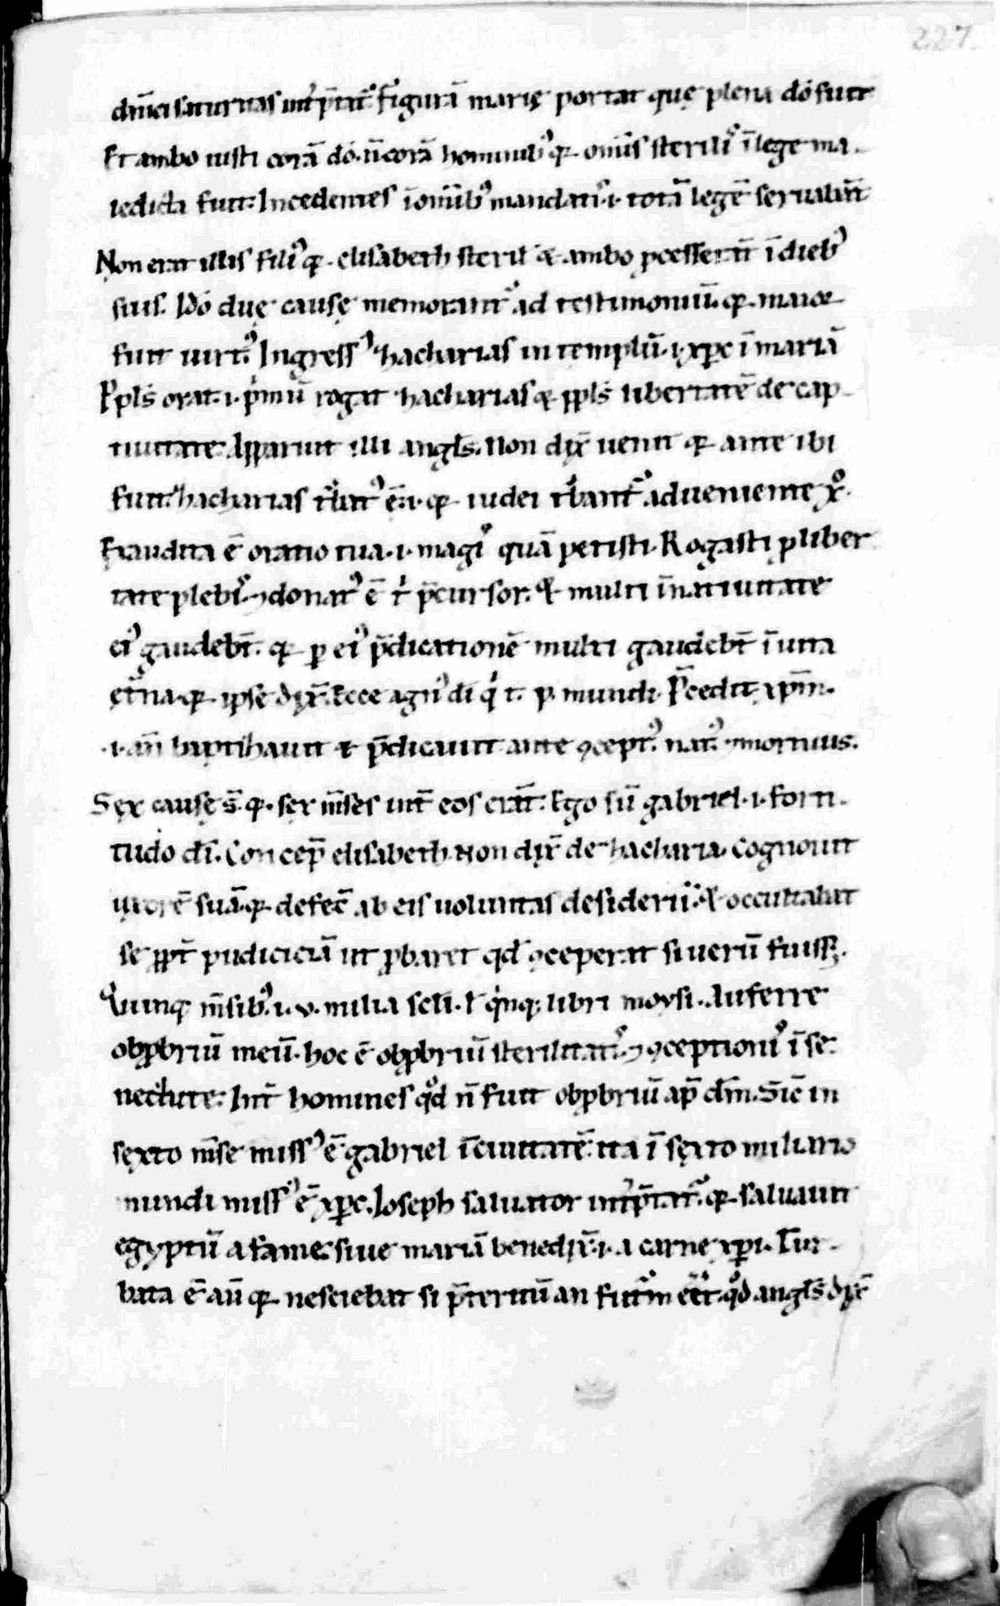 227
dn̄ici saturitas int̄p̄tat᷒ figurā marię portat quę plena dō fuit
Et ambo iusti corā dō. n̄ corā hominib᷒ q̄ omīs sterilis ī lege ma-
ledicta fuit. Incedentes ī omīb᷒ mandatis .i. totā legē seruabant̄
Non erat illis fili᷒ q̄ elisabeth steril & ambo p̄cesserūt ī dieb᷒
suis. Idō duę causę memorant᷒ ad testimoniū. q̄ maior
fuit uirt᷒. Ingress᷒ zacharias in templū .i. xp̄c ī mariā
P̄pl̄s orat .i. p̄mū rogat zacharias & p̄pl̄s libertatē de cap-
tiuitate. Apparuit illi angl̄s. Non dix̄ uenit q̄ ante ibi
fuit. zacharias t᷒bat᷒ ē .i. q̄ iudei t᷒bant᷒ adueniente xp̄o.
Exaudita ē oratio tua .i. magis quā petisti. Rogasti p̄ liber-
tate plebis ⁊ donat᷒ ē t᷒ p̄cursor. & multi ī natiuitate
ei᷒ gaudebt̄. q̄ p ei᷒ p̄dicationē multi gaudebt̄ ī uita
ęt̄na. q̄ ipse dix̄. Ecce agn᷒ dī q᷒ t. p. mundi. P̄cedit xp̄m.
.i. an̄ baptizauit & p̄dicauit ante ꝯcept᷒ nat᷒ ⁊ mortuus.
Sex causę s̄. q̄ sex m̄ses int̄ eos erāt. Ego sū gabriel .i. forti-
tudo dī. Concep̄ elisabeth. Non dix̄ de zacharia. Cognouit
uxorē suā. q̄ defec̄ ab eis uoluntas desiderii. & occultabat
se ppt̄ pudiciciā ut p̄baret qd̄ ꝯceperat si uerū fuiss.
Quinq; m̄sib᷒ .i. v. milia scl̄i. ł q᷒nq; libri moysi. Auferre
obp̄briū meū. hoc ē obp̄briū sterilitatis ⁊ ꝯceptionis ī se-
nectute. Int̄ homines qd̄ n̄ fuit obp̄briū ap̄ dm̄. Sic̄ in
sexto m̄se miss᷒ ē gabriel ī ciuitatē ita ī sexto miliario
mundi miss᷒ ē xp̄c. Ioseph saluator int̄p̄tat᷒. q̄ saluauit
egyptū a fame. siue mariā benedix̄ .i. a carne xp̄i. Tur-
bata ē aū q̄ nesciebat si p̄teritū an futurm eēt. qd̄ angl̄s dix̄